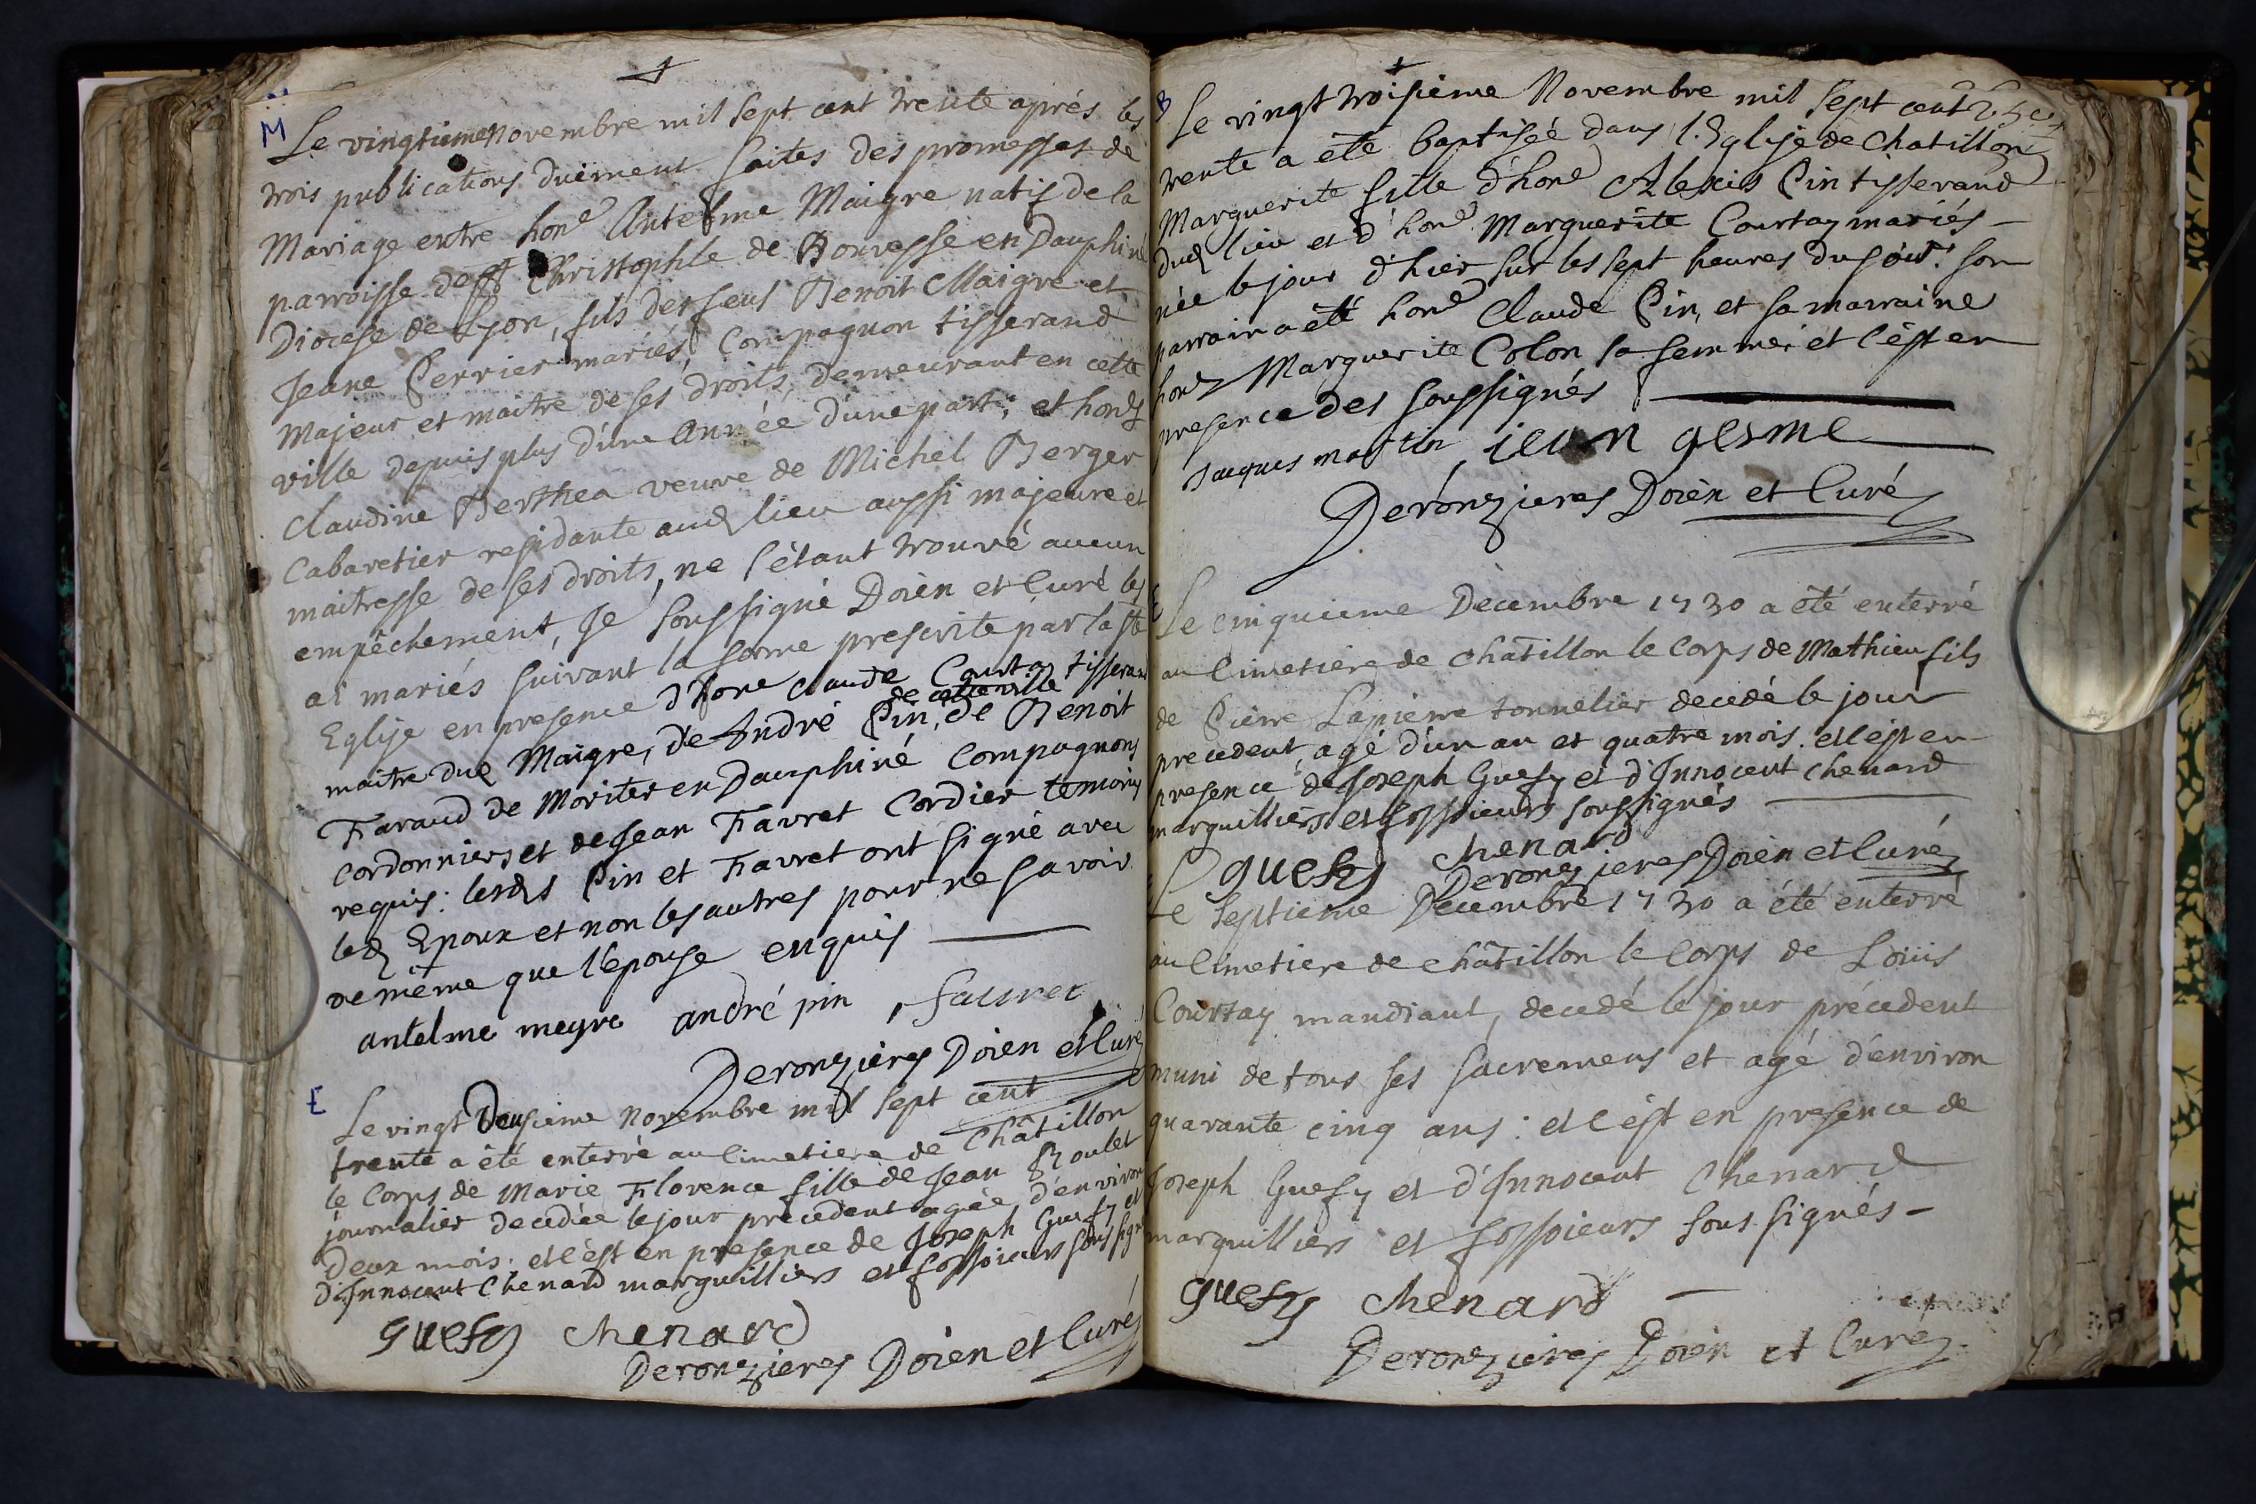 M
Le vingtieme novembre mil sept cent trente aprés les
trois publications duëment faites des promesses de
Mariage entre hone Antelme Maigre natif de la
parroisse de st Christophle de Bouvesse en Dauphiné
Diocese de Lyon, fils des feus Benoit Maigre et
Jeane Perrier mariés, Compagnon tisserand
Majeur et maitre de ses droits, demeurant en cette
ville depuis plus d'une Année d'une part; et hone
Claudine Berthea veuve de Michel Berger
Cabaretier residante aud lieu aussi majeure et
maitresse de ses droits, ne s'étant trouvé aucun
empêchement, Je soussigné Doïen et Curé les
ai mariés suivant la forme prescrite par la ste
Eglise en presence d'hone Claude Courtay tisserand
de cette ville
maitre dud Maigre, de André Pin, de Benoit
Faraud de Moriter en Dauphiné Compagnons
Cordonniers et de Jean Favret Cordier temoins
requis: lesds Pin et Favret ont signé avec
led Epoux et non les autres pour ne savoir
de même que l'épouse enquis
antelme meyre andré pin, favret
Deronzieres Doïen et Curé
E
Le vingt Deusieme novembre mil sept cent
trente a été enterré au Cimetiere de Châtillon
le Corps de Marie Florence fille de Jean Roulet
journalier decedée le jour precedent agée d'environ
deux mois. et c'est en presence de Joseph Guefy et
d'Innocent Chenard marguilliers et fossoieurs soussignés
guefy chenard
Deronzieres Doïen et Curé
B
Le vingt troisieme Novembre mil sept cent
trente a été baptisée dans l'Eglise de Chatillon
Marguerite fille d'hone Alexis Pin tisserand
dud lieu et d'hone Marguerite Courtay mariés
née le jour d'hier sur les sept heures du soir: son
parrain a été hone Claude Pin, et sa marraine
hone Marguerite Colon sa femme: et c'est en
presence des soussignés
Jaques martin jean gesme
Deronzieres Doïen et Curé
E
Le cinquieme Decembre 1730 a été enterré
au Cimetiere de Châtillon le Corps de Mathieu fils
de Pierre Lapierre tonnelier decedé le jour
precedent, agé d'un an et quatre mois. et c'est en
presence de Joseph Guefy et d'Innocent chenard
marguilliers et fossoieurs soussignés
guefy chenard
Deronzieres Doïen et Curé
Le septieme Decembre 1730 a été enterré
au Cimetiere de châtillon le Corps de Loüis
Courtay mandiant, decedé le jour précedent
muni de tous ses sacremens et agé d'environ
quarante cinq ans: et c'est en presence de
Joseph Guefy et d'Innocent Chenard
marguilliers et fossoieurs soussignés
guefy chenard
Deronzieres Doïen et Curé